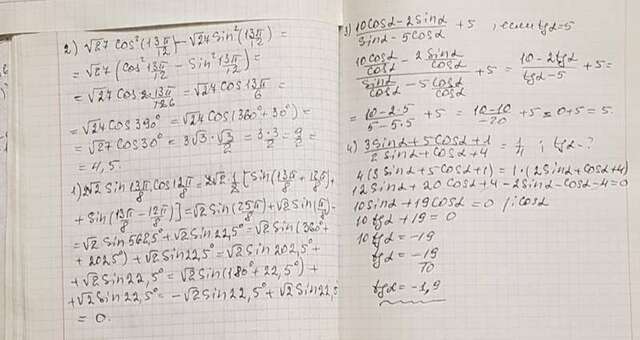 2) √27 cos²(13π/12) - √24 sin²(13π/12) =
= √27 (cos² 13π/12 - sin² 13π/12) =
= √27 cos 2·13π/126 = √24 cos 13π/6 =
= √24 cos 390° = √24 cos(360°+30°) =
= √27 cos 30° = 3√3·√3/2 = 3·3/2 = 9/2 =
= 4,5.
1) 2√2 sin 13π/8 cos 12π/8 = 2√2·1/2 [sin(13π/8 + 12π/8) +
+ sin(13π/8 - 12π/8)] = √2 sin(25π/8) + √2 sin(π/8) =
= √2 sin 562,5° + √2 sin 22,5° = √2 sin(360° +
+ 202,5°) + √2 sin 22,5° = √2 sin 202,5° +
+ √2 sin 22,5° = √2 sin(180° + 22,5°) +
+ √2 sin 22,5° = -√2 sin 22,5° + √2 sin 22,5
= 0.
3) 10cosα - 2sinα / sinα - 5cosα + 5, если tgα=5
10cosα/cosα - 2sinα/cosα / sinα/cosα - 5cosα/cosα + 5 = 10 - 2tgα / tgα - 5 + 5 =
= 10 - 2·5 / 5 - 5·5 + 5 = 10 - 10 / -20 + 5 = 0 + 5 = 5.
4) 3sinα + 5cosα + 1 / 2sinα + cosα + 4 = 1/4 ; tgα - ?
4(3sinα + 5cosα + 1) = 1·(2sinα + cosα + 4)
12sinα + 20cosα + 4 - 2sinα - cosα - 4 = 0
10sinα + 19cosα = 0 /: cosα
10tgα + 19 = 0
10tgα = -19
tgα = -19/10
tgα = -1,9